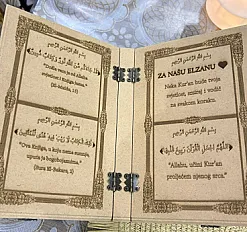 بسم الله الرحمن الرحيم
"Dođe vam od Allaha
svjetlost i Knjiga jasna."
(El-Maide, 15)
بسم الله الرحمن الرحيم
"Ova Knjiga, u koju nema sumnje,
uputa je bogobojaznima."
(Sura El-Bekare, 2)
بسم الله الرحمن الرحيم
ZA NAŠU ELZANU
Neka Kur'an bude tvoja
svjetlost, smiraj i vodič
na svakom koraku.
بسم الله الرحمن الرحيم
"Allahu, učini Kur'an
proljećem njenog srca."